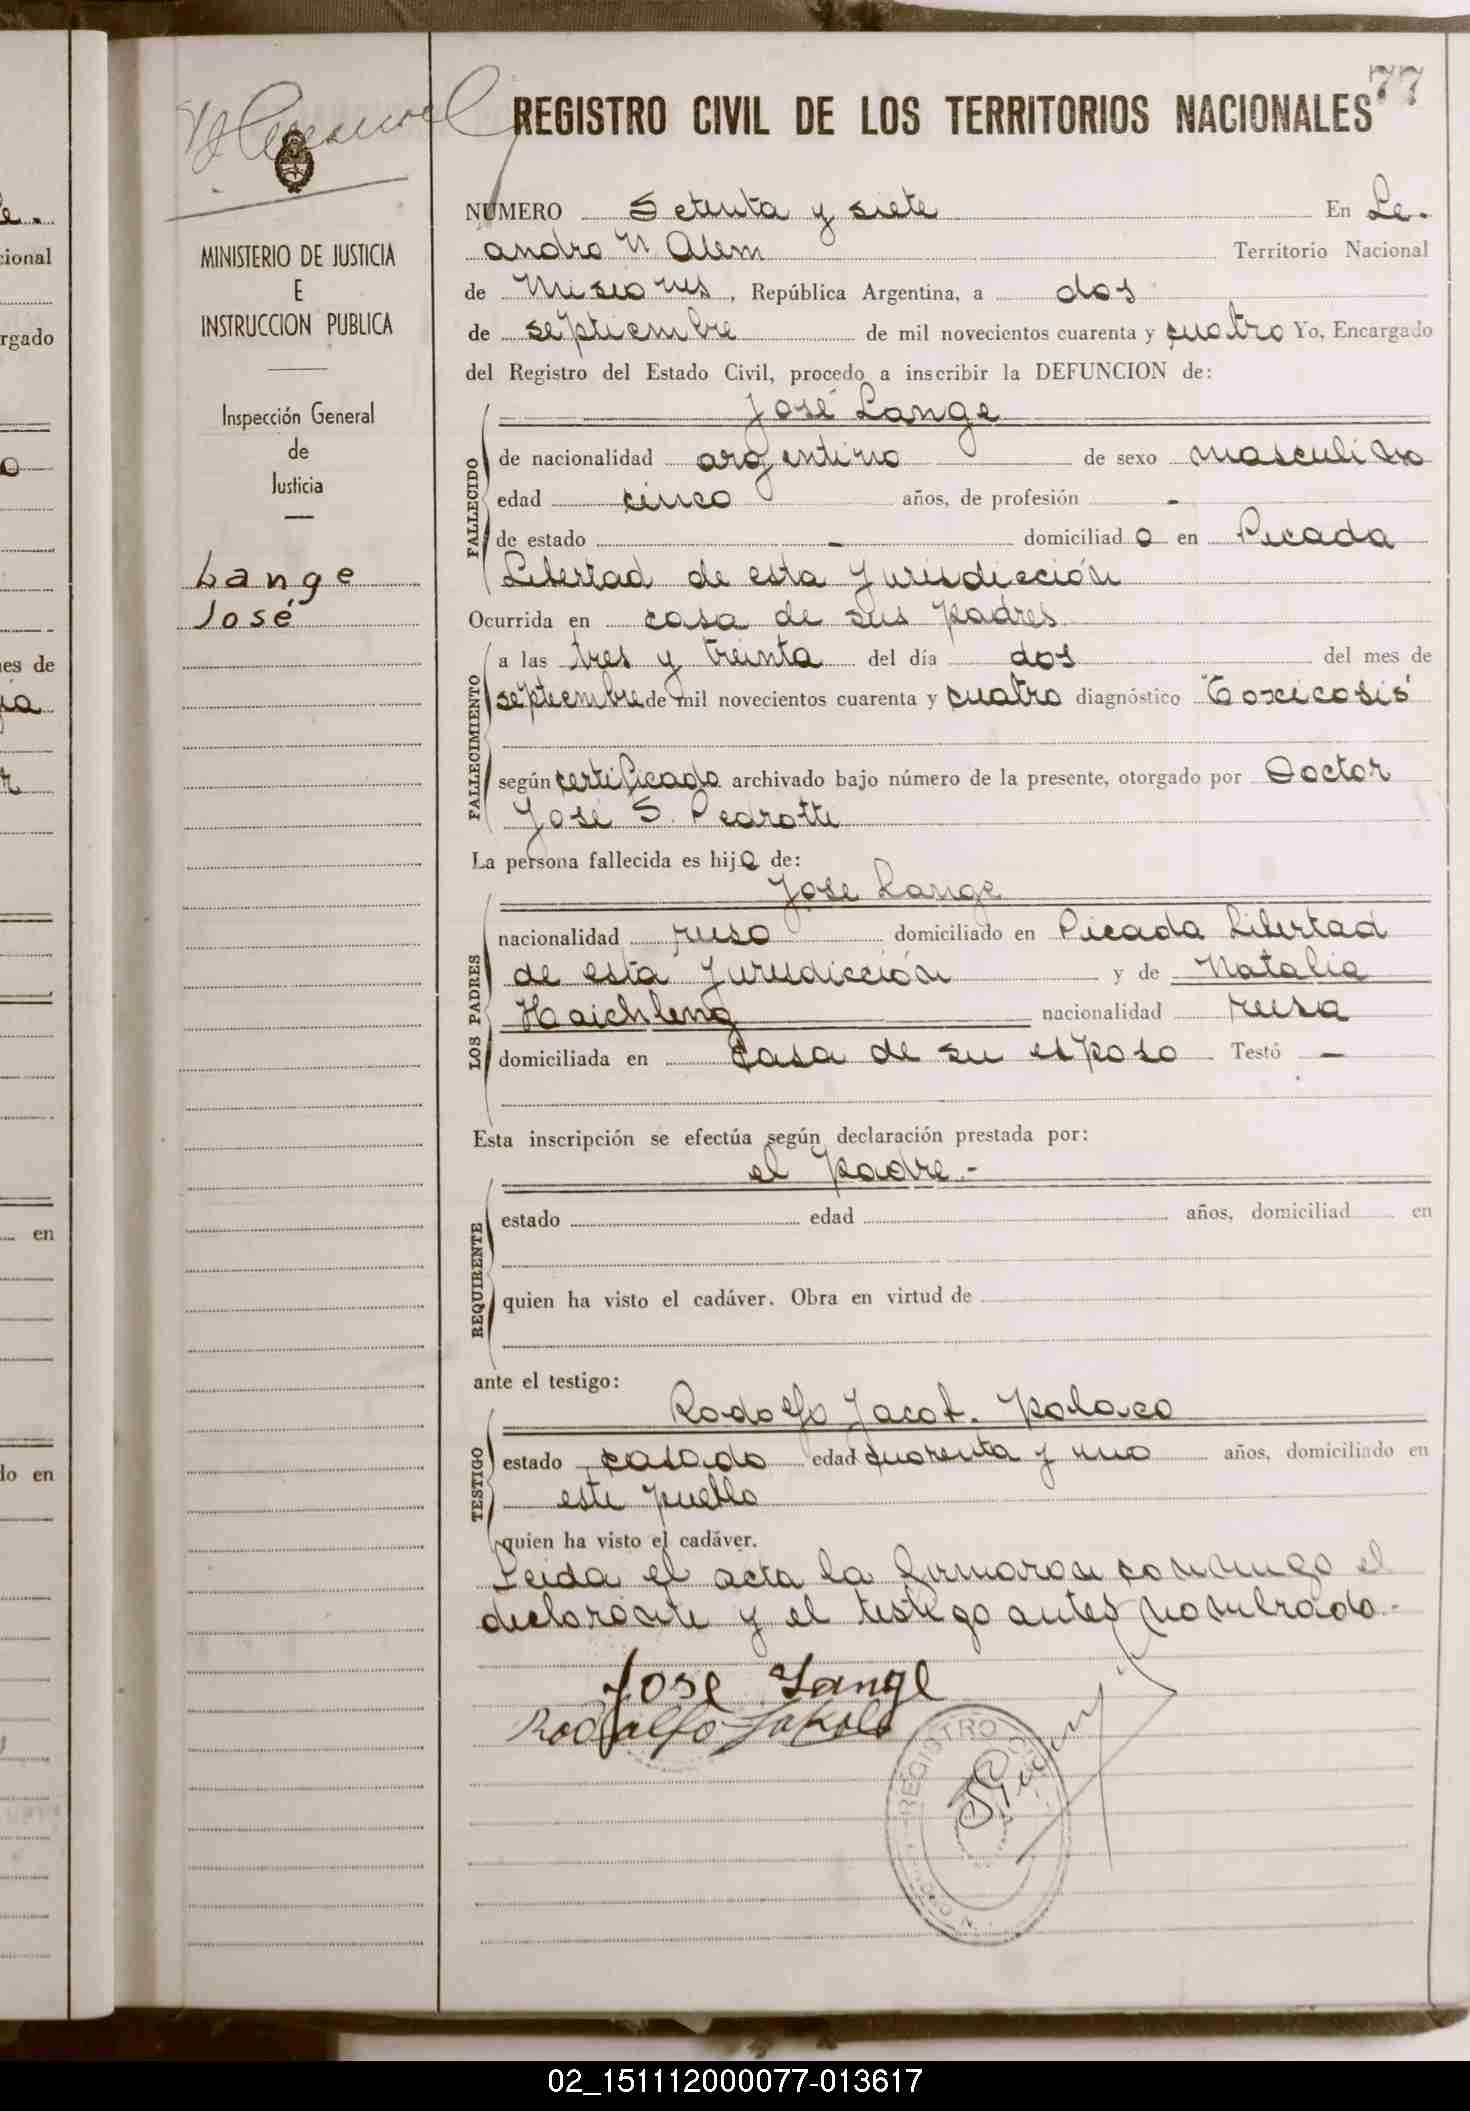 77
REGISTRO CIVIL DE LOS TERRITORIOS NACIONALES
MINISTERIO DE JUSTICIA
E
INSTRUCCION PUBLICA
Inspección General
de
Justicia
Lange
José
NUMERO Setenta y siete En Le-
andro N Alem Territorio Nacional
de Misiones, República Argentina, a dos
de septiembre de mil novecientos cuarenta y cuatro Yo, Encargado
del Registro del Estado Civil, procedo a inscribir la DEFUNCION de:
José Lange
FALLECIDO
de nacionalidad argentino de sexo masculino
edad cinco años, de profesión -
de estado - domiciliado en Picada
Libertad de esta jurisdicción
Ocurrida en casa de sus padres
FALLECIMIENTO
a las tres y treinta del día dos del mes de
septiembre de mil novecientos cuarenta y cuatro diagnóstico "Toxicosis"
según certificado archivado bajo número de la presente, otorgado por Doctor
José S. Pedrotti
La persona fallecida es hijo de:
Jose Lange
LOS PADRES
nacionalidad ruso domiciliado en Picada Libertad
de esta jurisdicción y de Natalia
Haichleng nacionalidad rusa
domiciliada en casa de su esposo Testó -
Esta inscripción se efectúa según declaración prestada por:
el padre.-
REQUIRENTE
estado edad años, domiciliad en
quien ha visto el cadáver. Obra en virtud de
ante el testigo:
Rodolfo Jacot. polaco
TESTIGO
estado casado edad cuarenta y uno años, domiciliado en
este pueblo
quien ha visto el cadáver.
Leida el acta la firmaron conmigo el
declarante y el testigo antes nombrado.-
Jose Lange
Rodolfo Jakob
REGISTRO
02_151112000077-013617